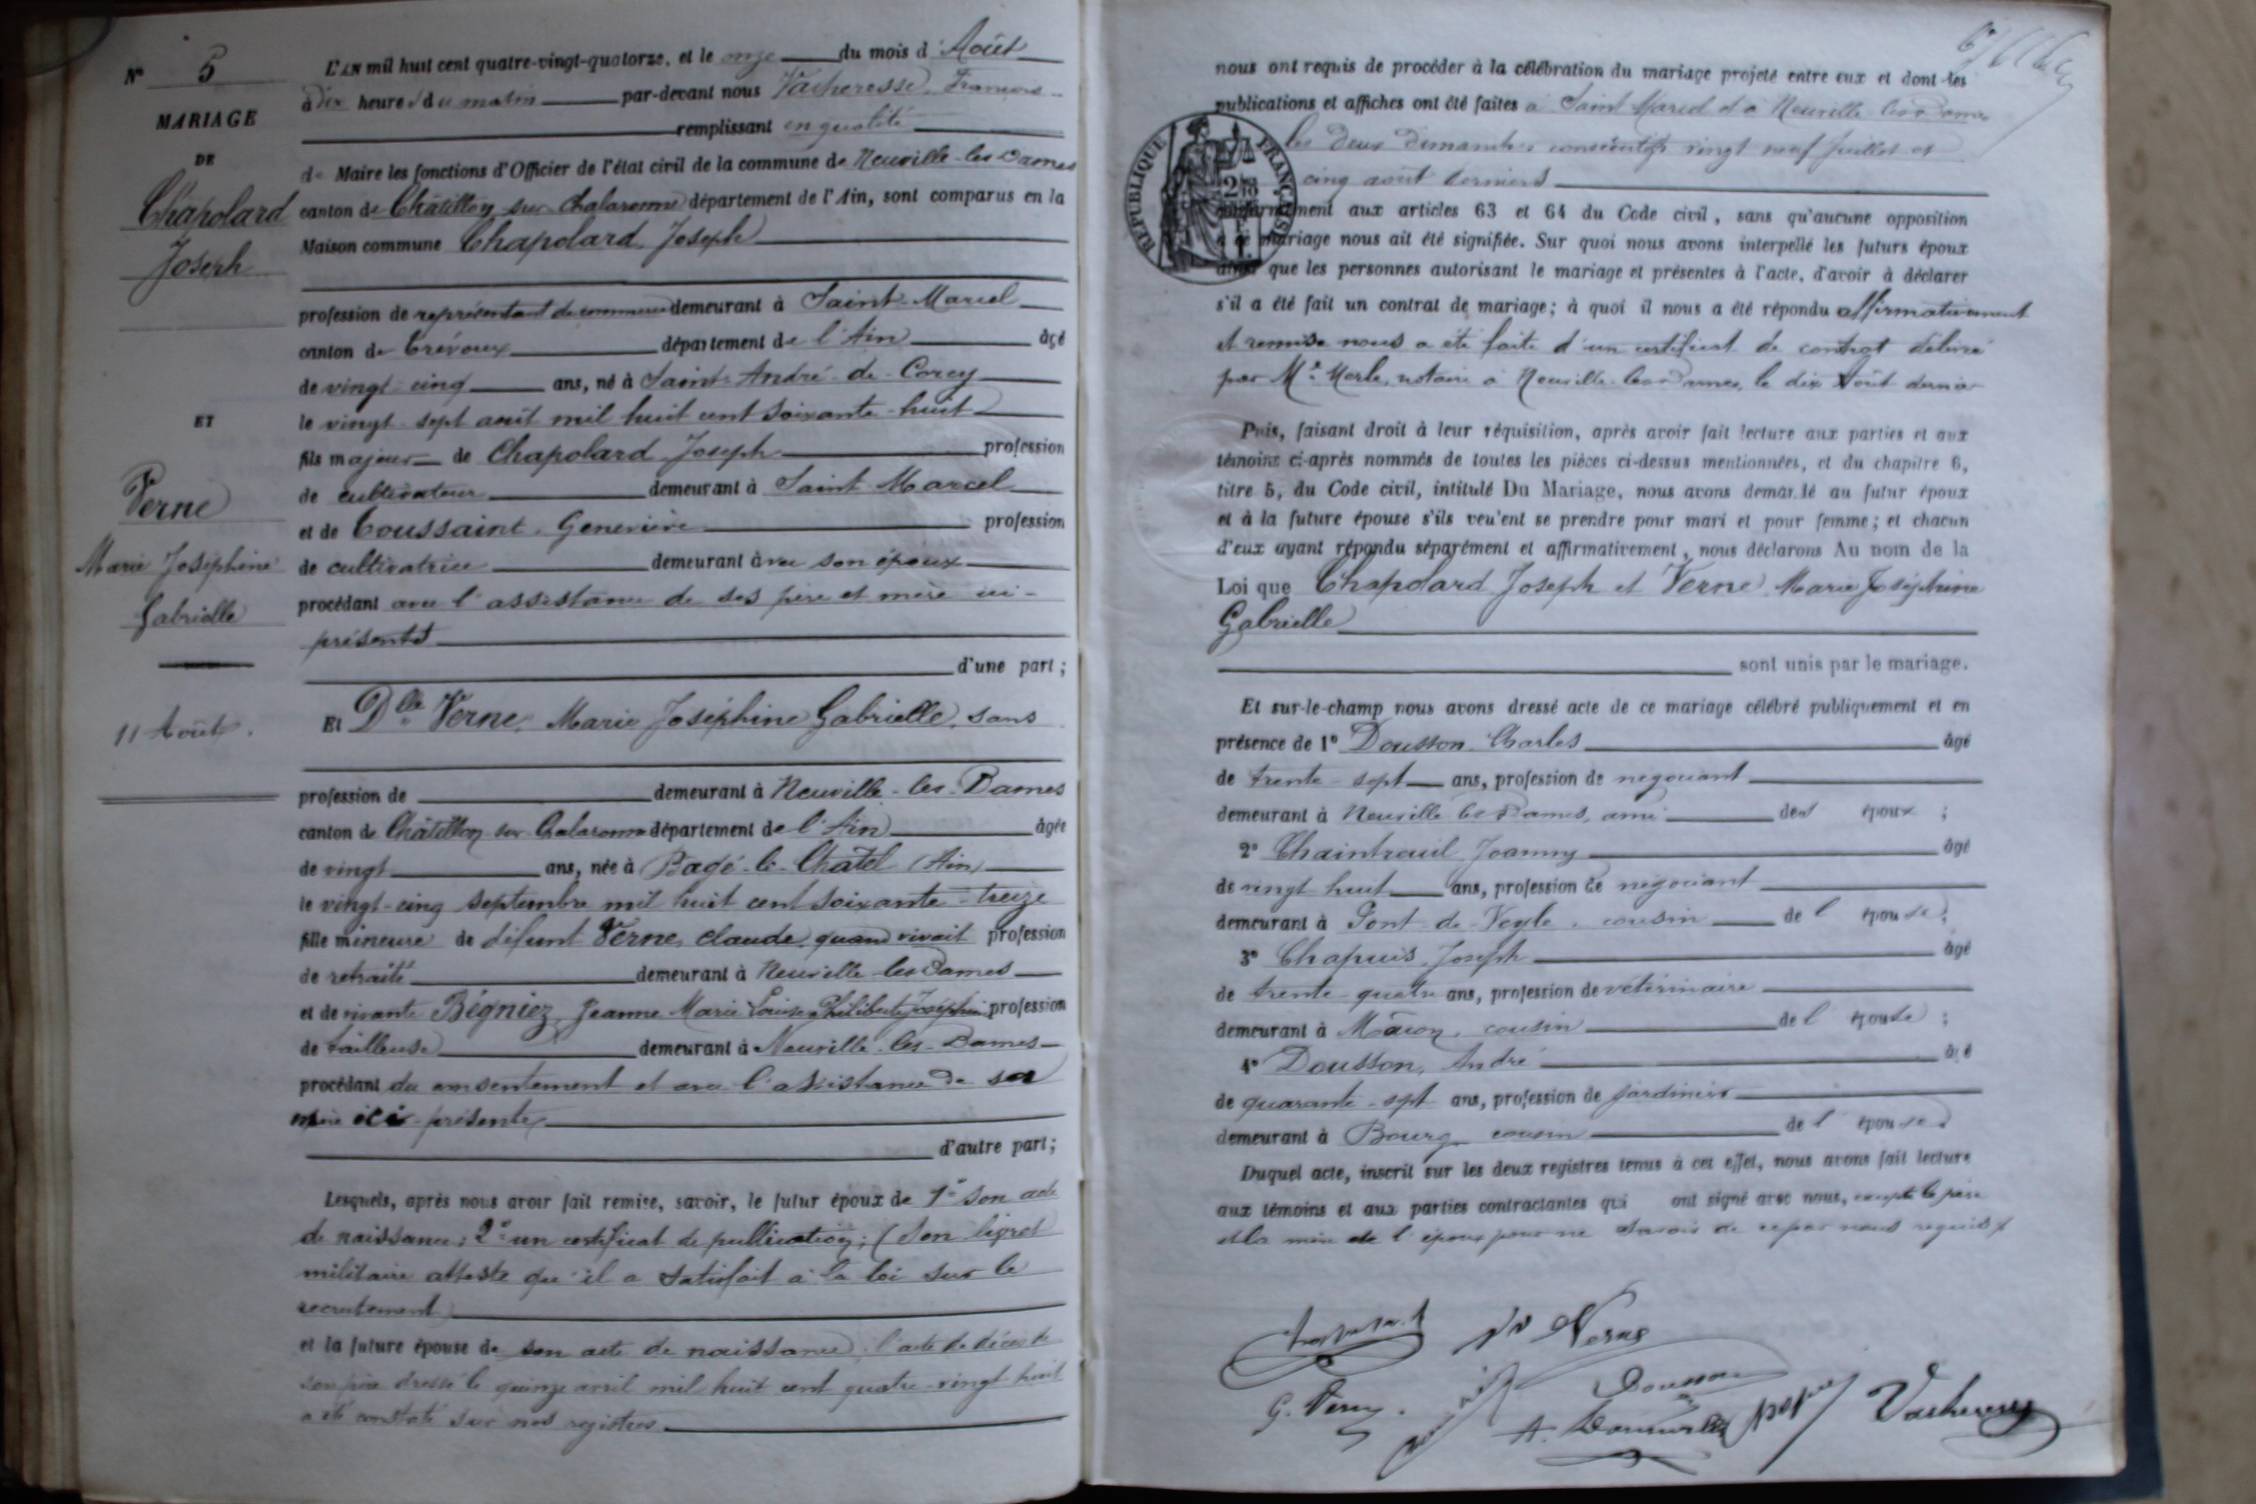 N° 5
MARIAGE
DE
Chapolard
Joseph
ET
Verne
Marie Joséphine
Gabrielle
11 Août.
L'AN mil huit cent quatre-vingt-quatorze, et le onze du mois d'Août
à dix heures du matin par-devant nous Vacheresse, François
remplissant en qualité
de Maire les fonctions d'Officier de l'état civil de la commune de Neuville-les-Dames
canton de Châtillon sur Chalaronne département de l'Ain, sont comparus en la
Maison commune Chapolard, Joseph
profession de représentant de commerce demeurant à Saint-Marcel
canton de Trévoux département de l'Ain âgé
de vingt-cinq ans, né à Saint-André-de-Corcy
le vingt-sept août mil huit cent soixante-huit
fils majeur de Chapolard Joseph profession
de cultivateur demeurant à Saint Marcel
et de Toussaint, Geneviève profession
de cultivatrice demeurant avec son époux
procédant avec l'assistance de ses père et mère ici-
présents
d'une part;
Et Dlle Verne, Marie Joséphine Gabrielle, sans
profession de demeurant à Neuville-les-Dames
canton de Châtillon sur Chalaronne département de l'Ain âgée
de vingt ans, née à Bagé-le-Châtel (Ain)
le vingt-cinq septembre mil huit cent soixante-treize
fille mineure de défunt Verne, claude, quand vivait profession
de retraité demeurant à Neuville-les-Dames
et de vivante Bégniez, Jeanne Marie Louise Philiberte Joséphine profession
de tailleuse demeurant à Neuville-les-Dames
procédant du consentement et avec l'assistance de sa
mère ici-présente
d'autre part;
Lesquels, après nous avoir fait remise, savoir, le futur époux de 1° son acte
de naissance; 2° un certificat de publication; (Son livret
militaire atteste qu'il a satisfait à la loi sur le
recrutement)
et la future épouse de son acte de naissance, l'acte de décès de
son père dressé le quinze avril mil huit cent quatre-vingt huit
a été constaté sur nos registres
nous ont requis de procéder à la célébration du mariage projeté entre eux et dont les
publications et affiches ont été faites à Saint Marcel et à Neuville les Dames
les deux dimanches consécutifs vingt neuf juillet et
cinq août derniers
RÉPUBLIQUE FRANÇAISE
conformément aux articles 63 et 64 du Code civil, sans qu'aucune opposition
à ce mariage nous ait été signifiée. Sur quoi nous avons interpellé les futurs époux
ainsi que les personnes autorisant le mariage et présentes à l'acte, d'avoir à déclarer
s'il a été fait un contrat de mariage; à quoi il nous a été répondu affirmativement
et remise nous a été faite d'un certificat de contrat délivré
par Me Merle, notaire à Neuville-les-Dames, le dix Août dernier
Puis, faisant droit à leur réquisition, après avoir fait lecture aux parties et aux
témoins ci-après nommés de toutes les pièces ci-dessus mentionnées, et du chapitre 6,
titre 5, du Code civil, intitulé Du Mariage, nous avons demandé au futur époux
et à la future épouse s'ils veulent se prendre pour mari et pour femme; et chacun
d'eux ayant répondu séparément et affirmativement, nous déclarons Au nom de la
Loi que Chapolard Joseph et Verne, Marie Joséphine
Gabrielle
sont unis par le mariage.
Et sur-le-champ nous avons dressé acte de ce mariage célébré publiquement et en
présence de 1° Dousson, Charles âgé
de trente-sept ans, profession de négociant
demeurant à Neuville les Dames, ami des époux;
2° Chaintreuil Joanny âgé
de vingt huit ans, profession de négociant
demeurant à Pont-de-Veyle, cousin de l'épouse;
3° Chapuis, Joseph âgé
de trente-quatre ans, profession de vétérinaire
demeurant à Mâcon, cousin de l'épouse;
4° Dousson, André âgé
de quarante-sept ans, profession de jardinier
demeurant à Bourg cousin de l'épouse
Duquel acte, inscrit sur les deux registres tenus à cet effet, nous avons fait lecture
aux témoins et aux parties contractantes qui ont signé avec nous, excepté le père
et la mère de l'époux pour ne savoir de ce par nous requis
Vve Verne
G. Verne.
Dousson
A. Dousson
Vacheresse